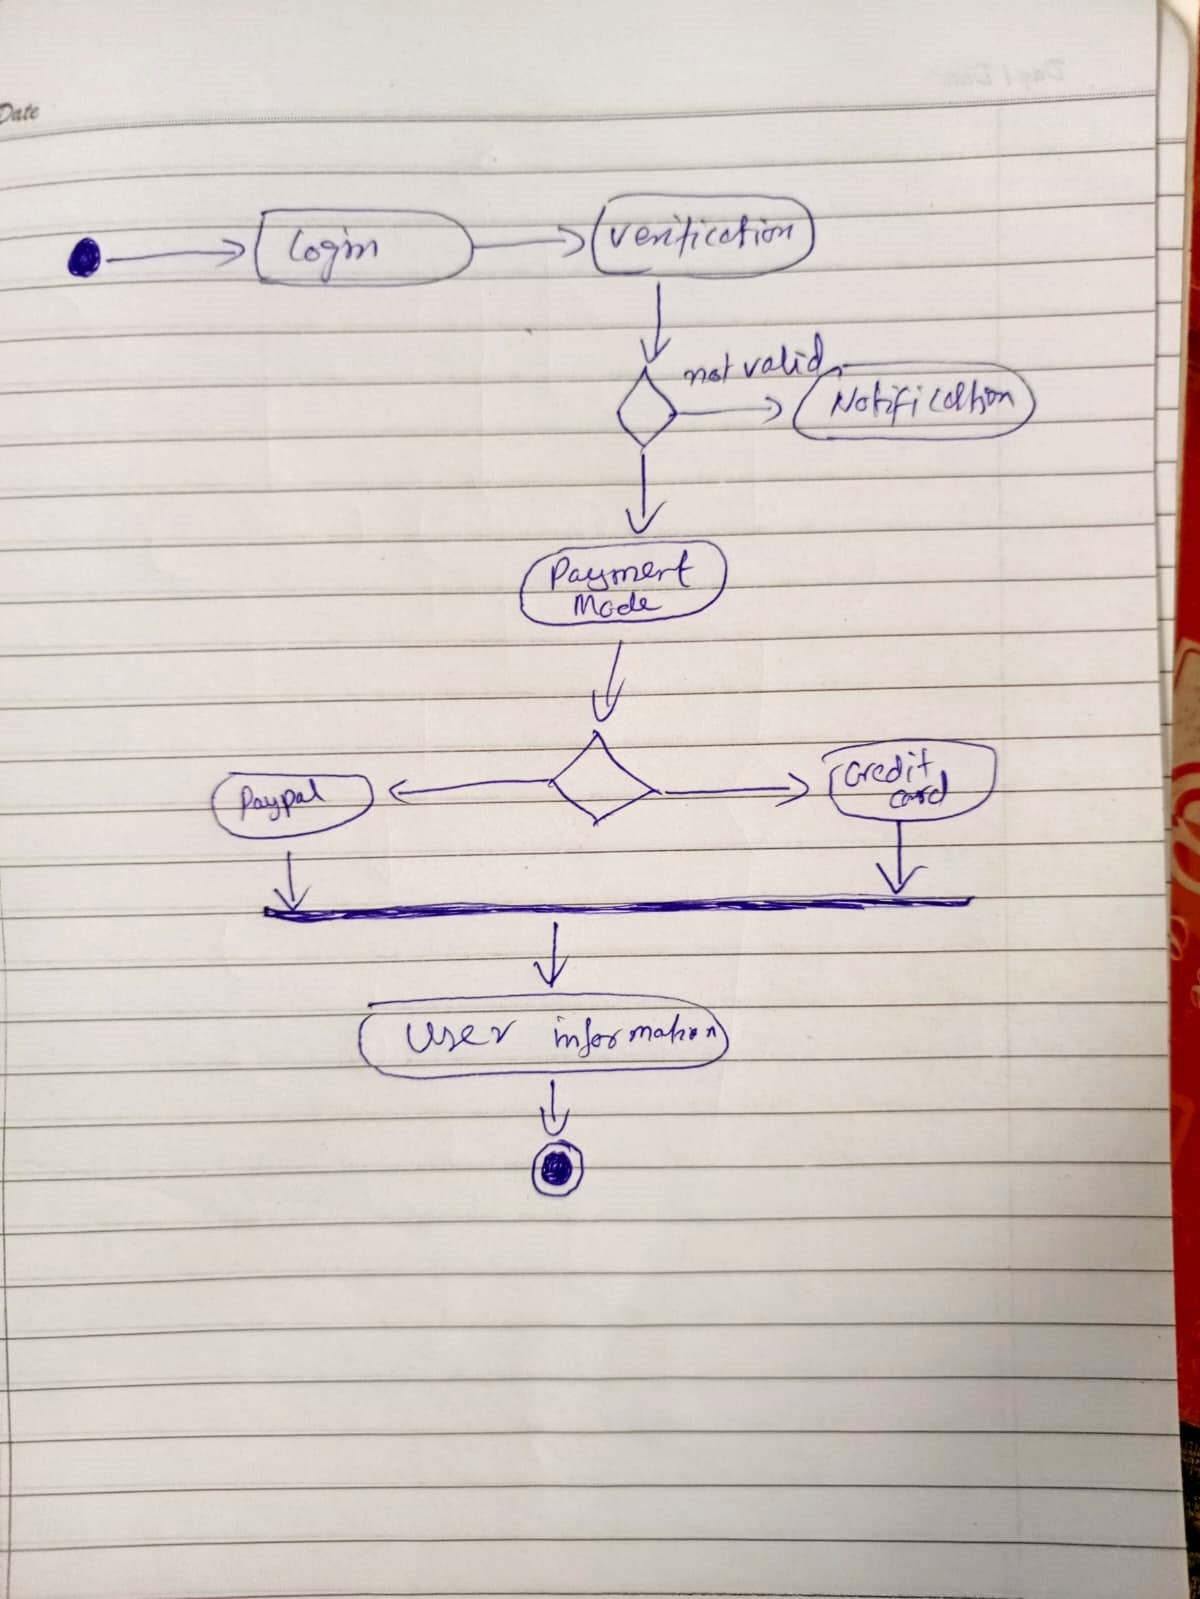 Date
Login
Verification
not valid
Notification
Payment
Mode
Paypal
Credit
card
User information